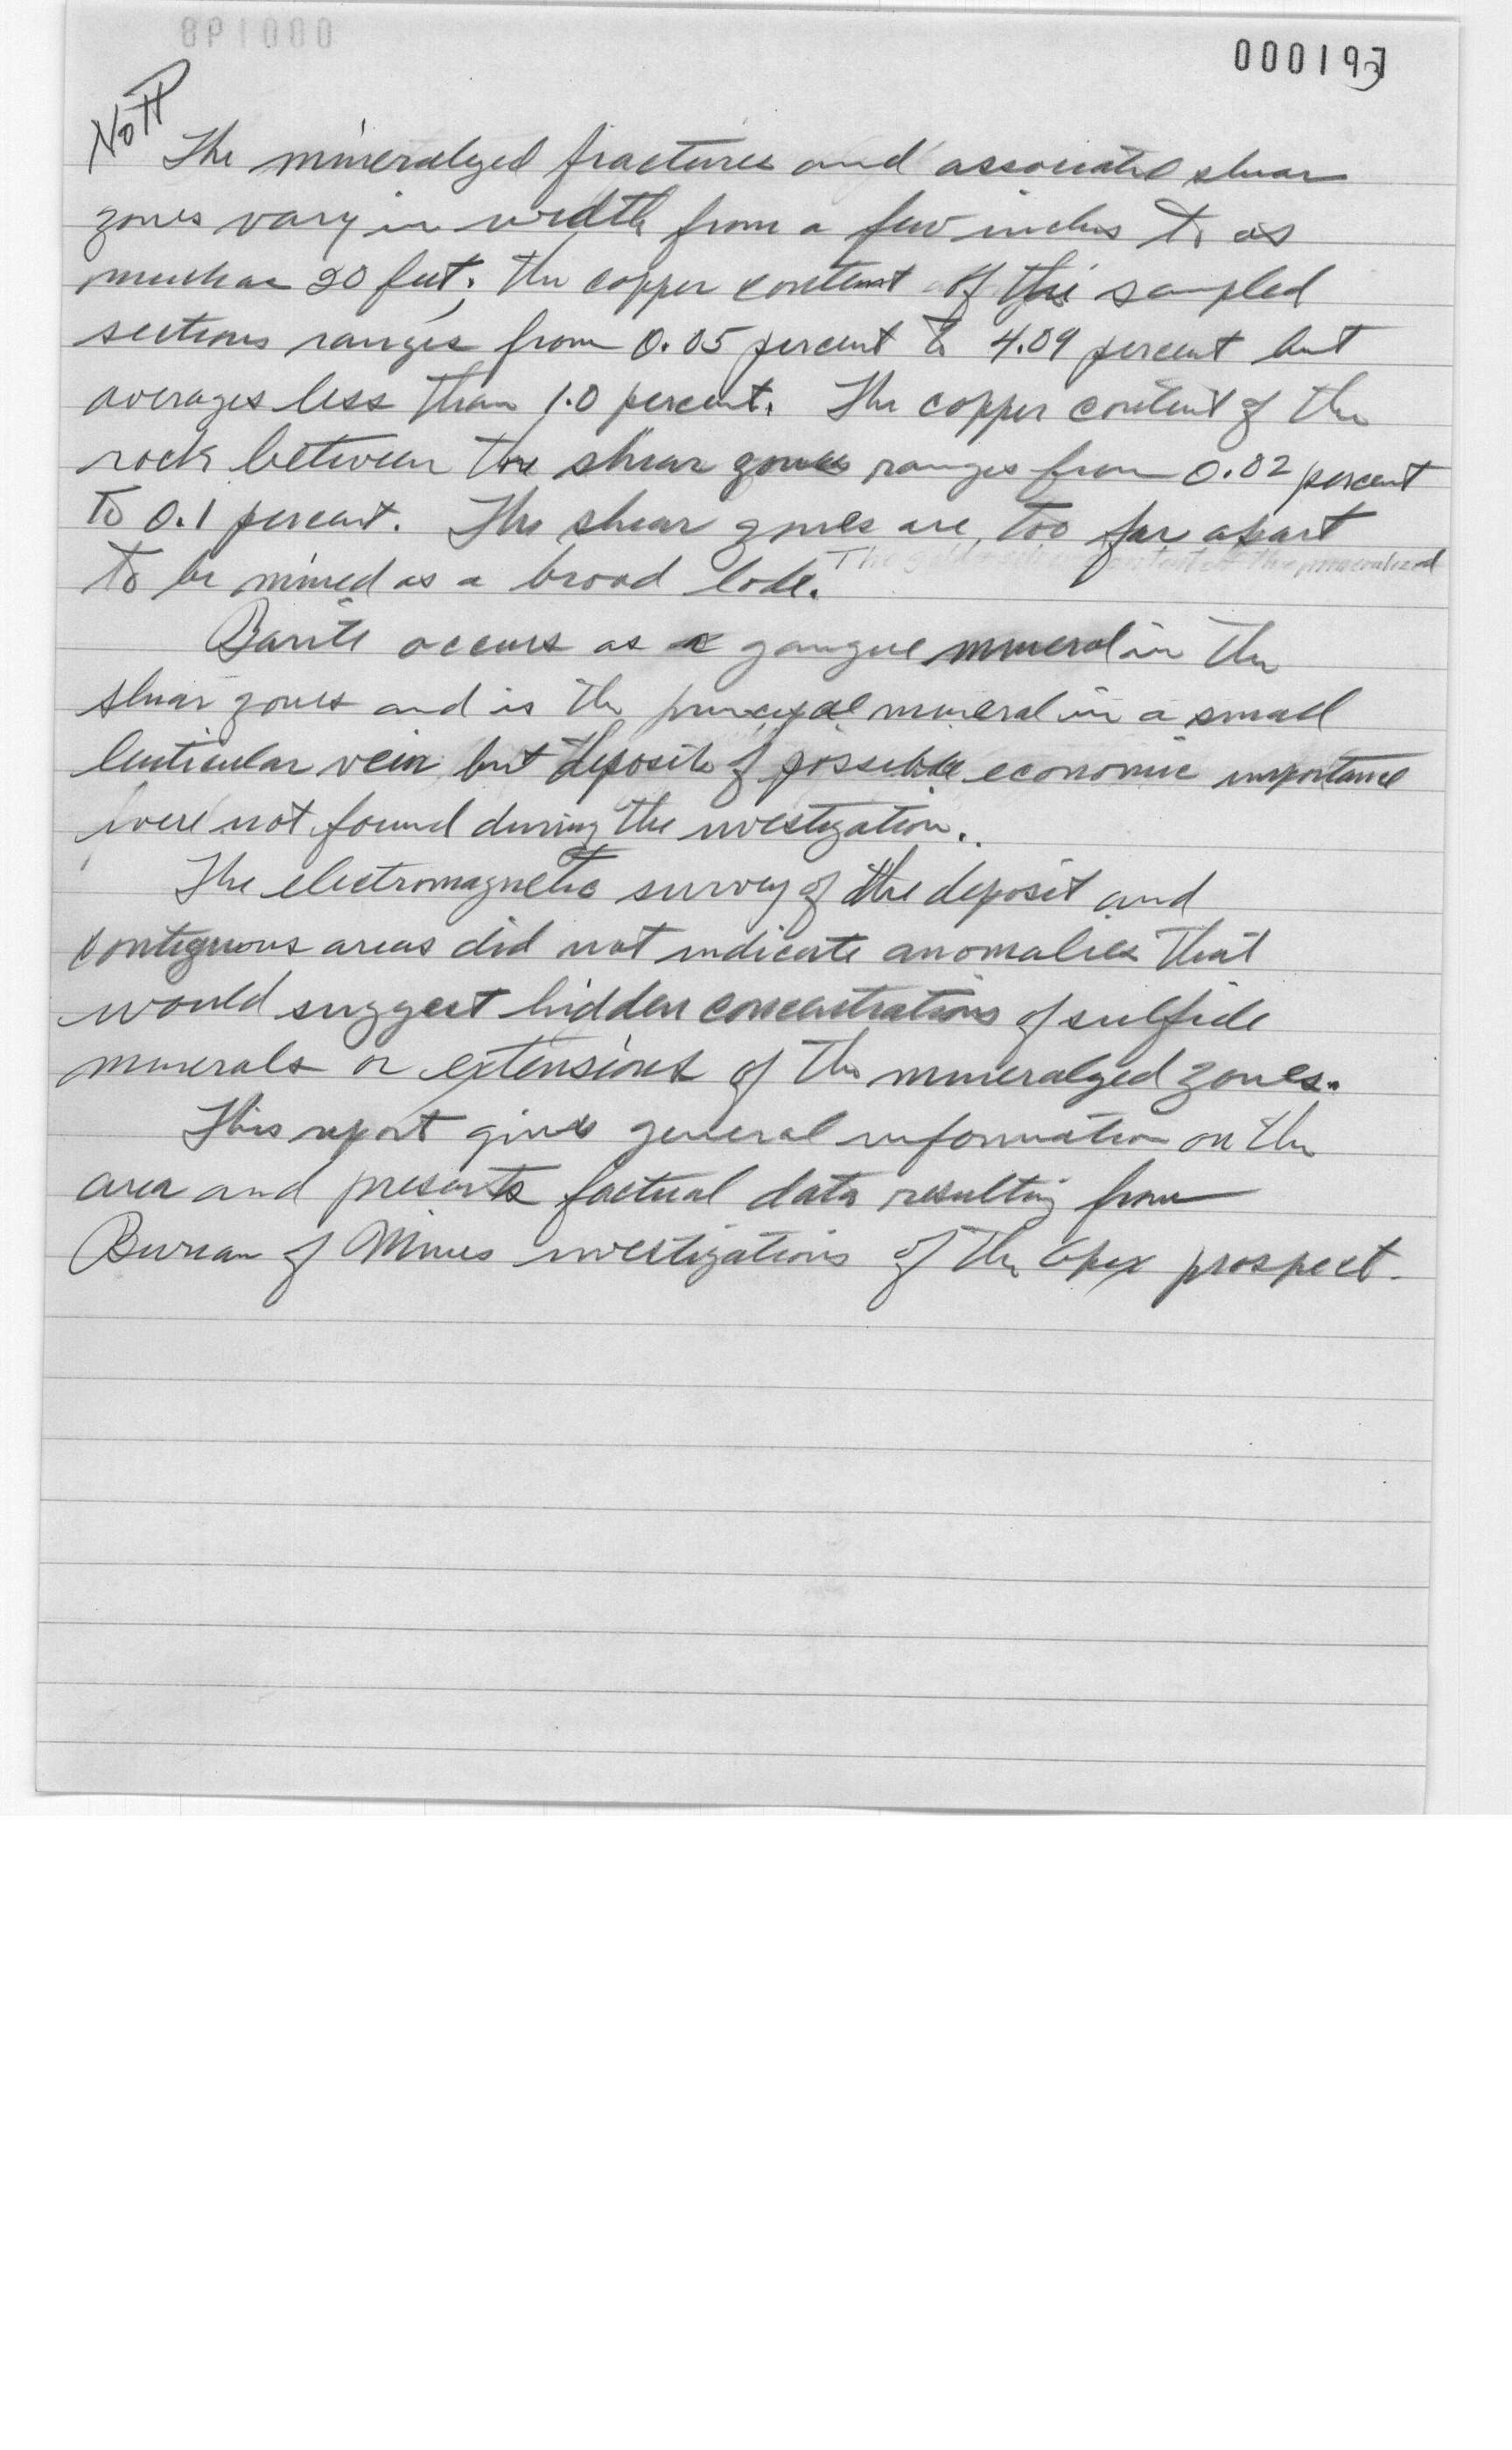 000193
No P
The mineralized fractures and associated shear
zones vary in width from a few inches to as
much as 20 feet; the copper content of the sampled
sections ranges from 0.05 percent to 4.09 percent but
averages less than 1.0 percent. The copper content of the
rock between the shear zones ranges from 0.02 percent
to 0.1 percent. The shear zones are too far apart
to be mined as a broad lode. The content of the mineralized
Barite occurs as a gangue mineral in the
shear zones and is the principal mineral in a small
lenticular vein but deposits of possible economic importance
were not found during the investigation.
The electromagnetic survey of the deposit and
contiguous areas did not indicate anomalies that
would suggest hidden concentrations of sulfide
minerals or extensions of the mineralized zones.
This report gives general information on the
area and presents factual data resulting from
Bureau of Mines investigations of the Apex prospect.